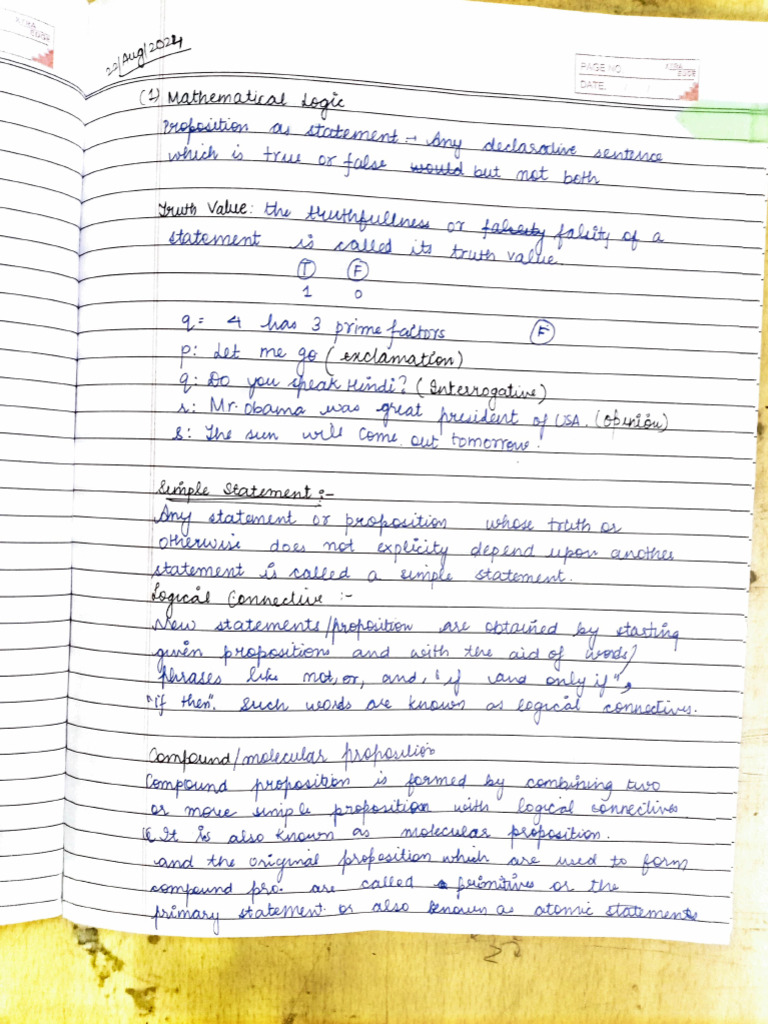 22/Aug/2024
PAGE NO.
DATE:
(1) Mathematical Logic
Proposition as statement → Any declarative sentence
which is true or false would but not both
Truth Value: the truthfullness or falsity falsity of a
statement is called its truth value.
T F
1 0
q = 4 has 3 prime factors F
p: Let me go (exclamation)
q: Do you speak Hindi? (Interrogative)
r: Mr. Obama was great president of USA. (Opinion)
s: The sun will come out tomorrow.
Simple Statement :-
Any statement or proposition whose truth or
otherwise does not explicity depend upon another
statement is called a simple statement.
Logical Connective :-
New statements/proposition are obtained by starting
given propositions and with the aid of words/
phrases like not, or, and, "if and only if",
"if then". Such words are known as logical connectives.
Compound/molecular proposition
Compound proposition is formed by combining two
or more simple proposition with logical connectives
It is also known as molecular proposition.
and the original proposition which are used to form
compound pro. are called primitives or the
primary statement or also known as atomic statements